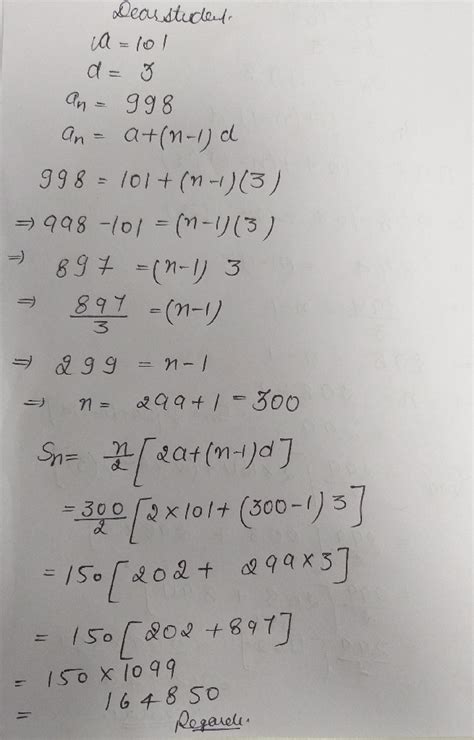 Dear student.
a = 101
d = 3
aₙ = 998
aₙ = a+(n-1) d
998 = 101 + (n-1)(3)
⇒ 998 - 101 = (n-1)(3)
⇒ 897 = (n-1) 3
⇒ 897/3 = (n-1)
⇒ 299 = n-1
⇒ n = 299+1 = 300
Sn = n/2 [2a+(n-1)d]
= 300/2 [2×101+(300-1)3]
= 150 [202 + 299×3]
= 150 [202 + 897]
= 150 × 1099
= 164850
Regards.